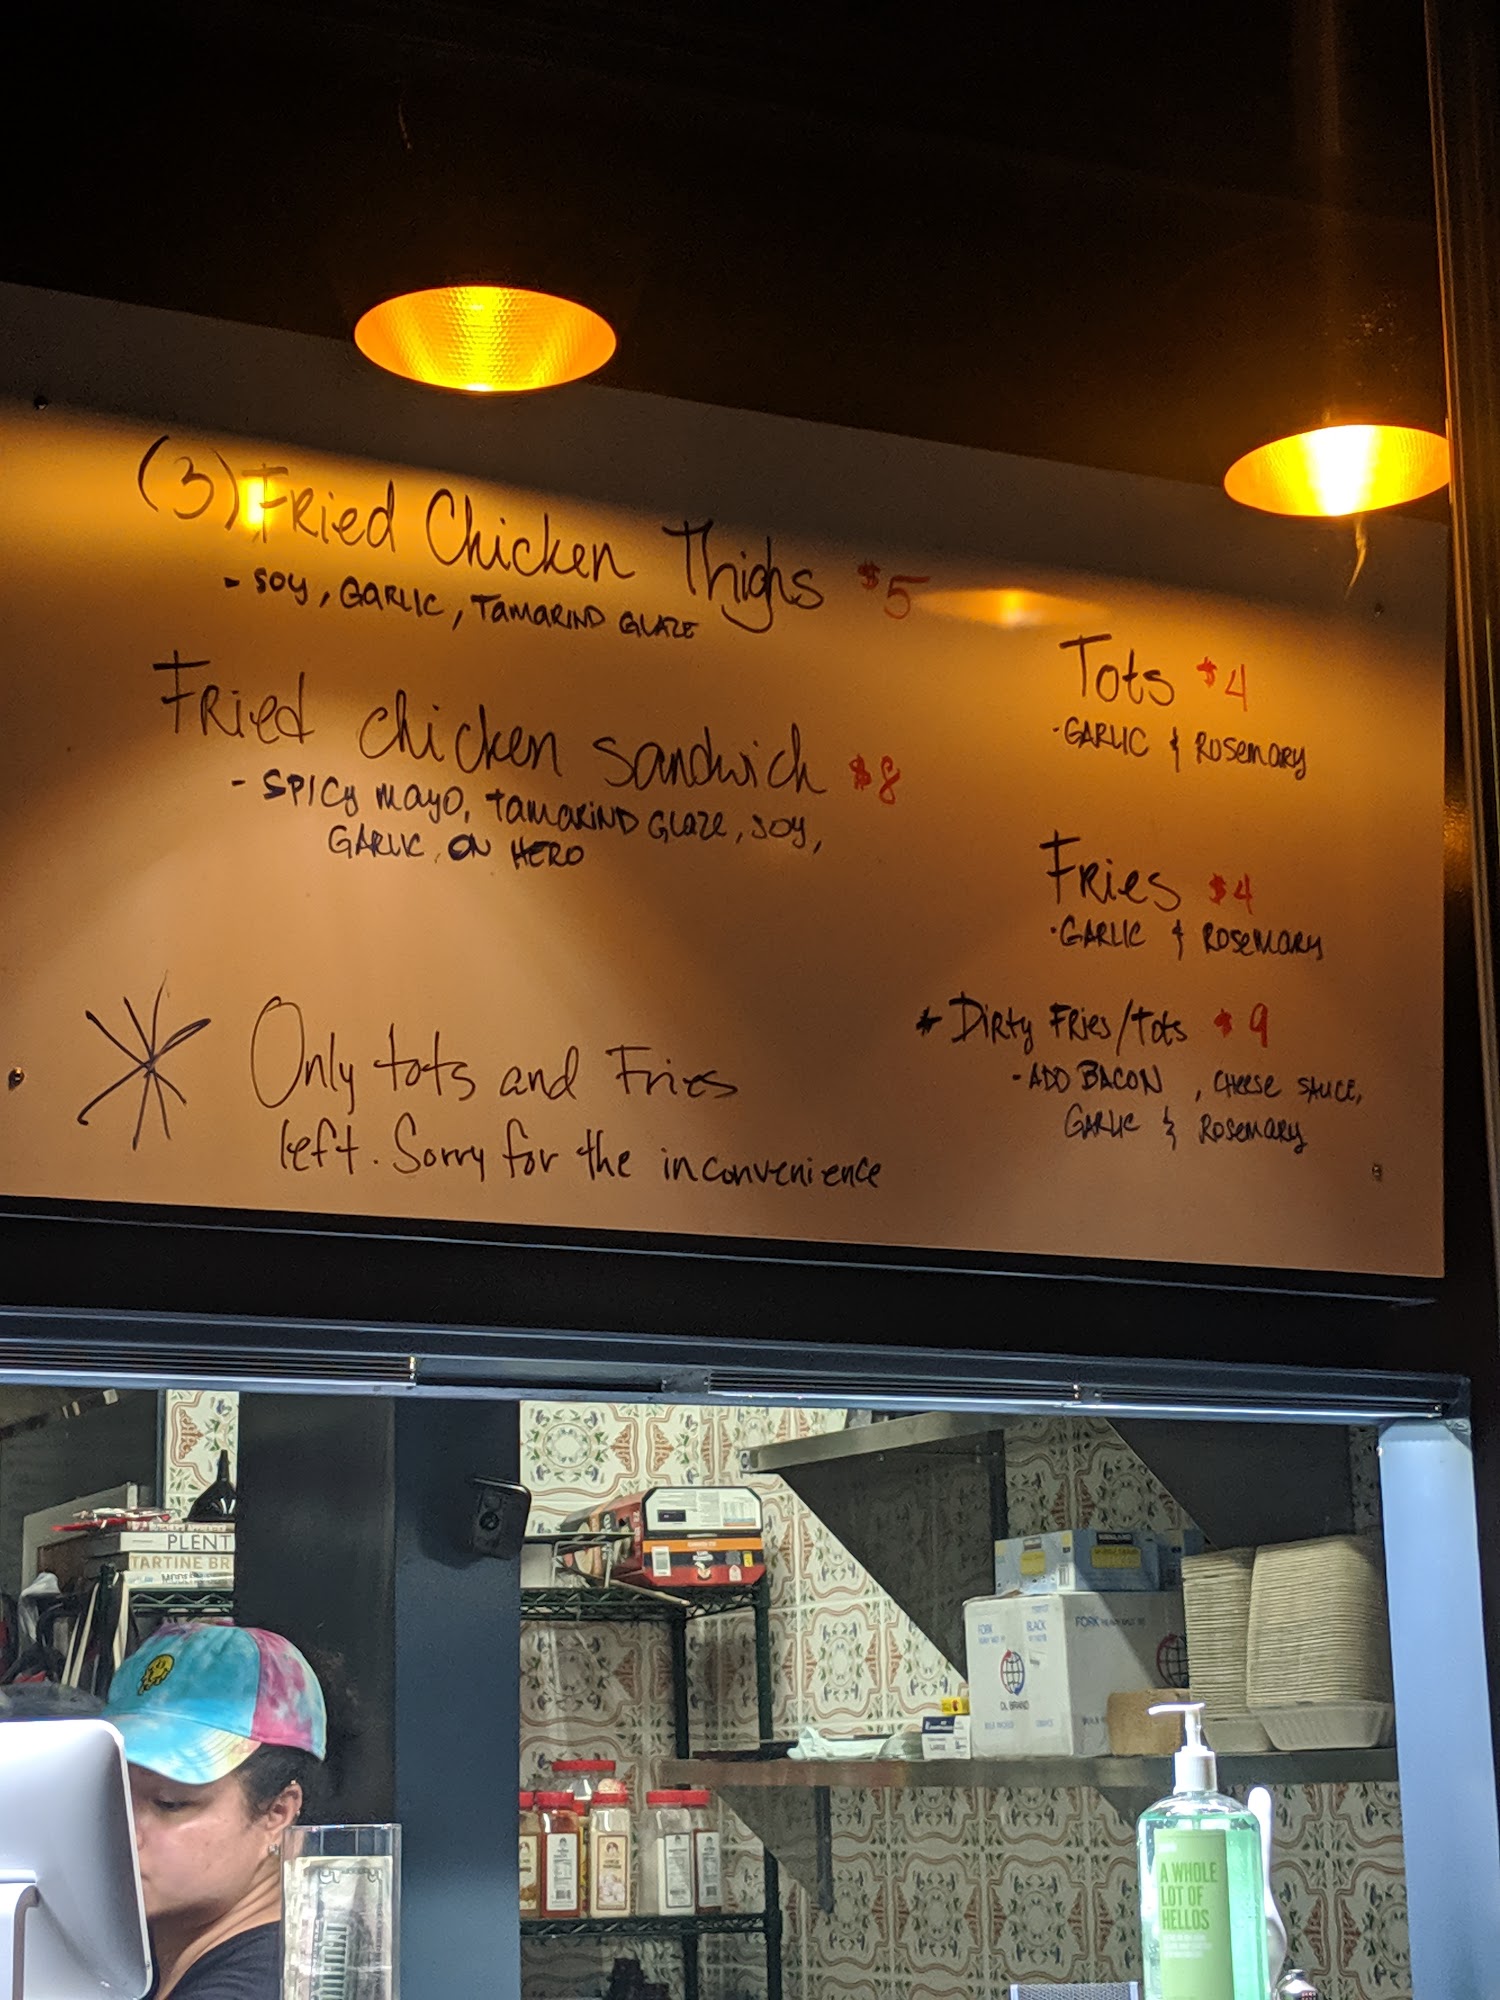 (3) Fried Chicken Thighs $5
- SOY, GARLIC, TAMARIND GLAZE
Fried chicken sandwich $8
- SPICY MAYO, TAMARIND GLAZE, SOY,
GARLIC, ON HERO
Only tots and Fries
left. Sorry for the inconvenience
Tots $4
·GARLIC & ROSEMARY
Fries $4
·GARLIC & ROSEMARY
* Dirty FRies/Tots $9
-ADD BACON, CHEESE SAUCE,
GARLIC & ROSEMARY
PLENT
TARTINE BR
FORK
BLACK
FORK
DL BRAND
A WHOLE
LOT OF
HELLOS